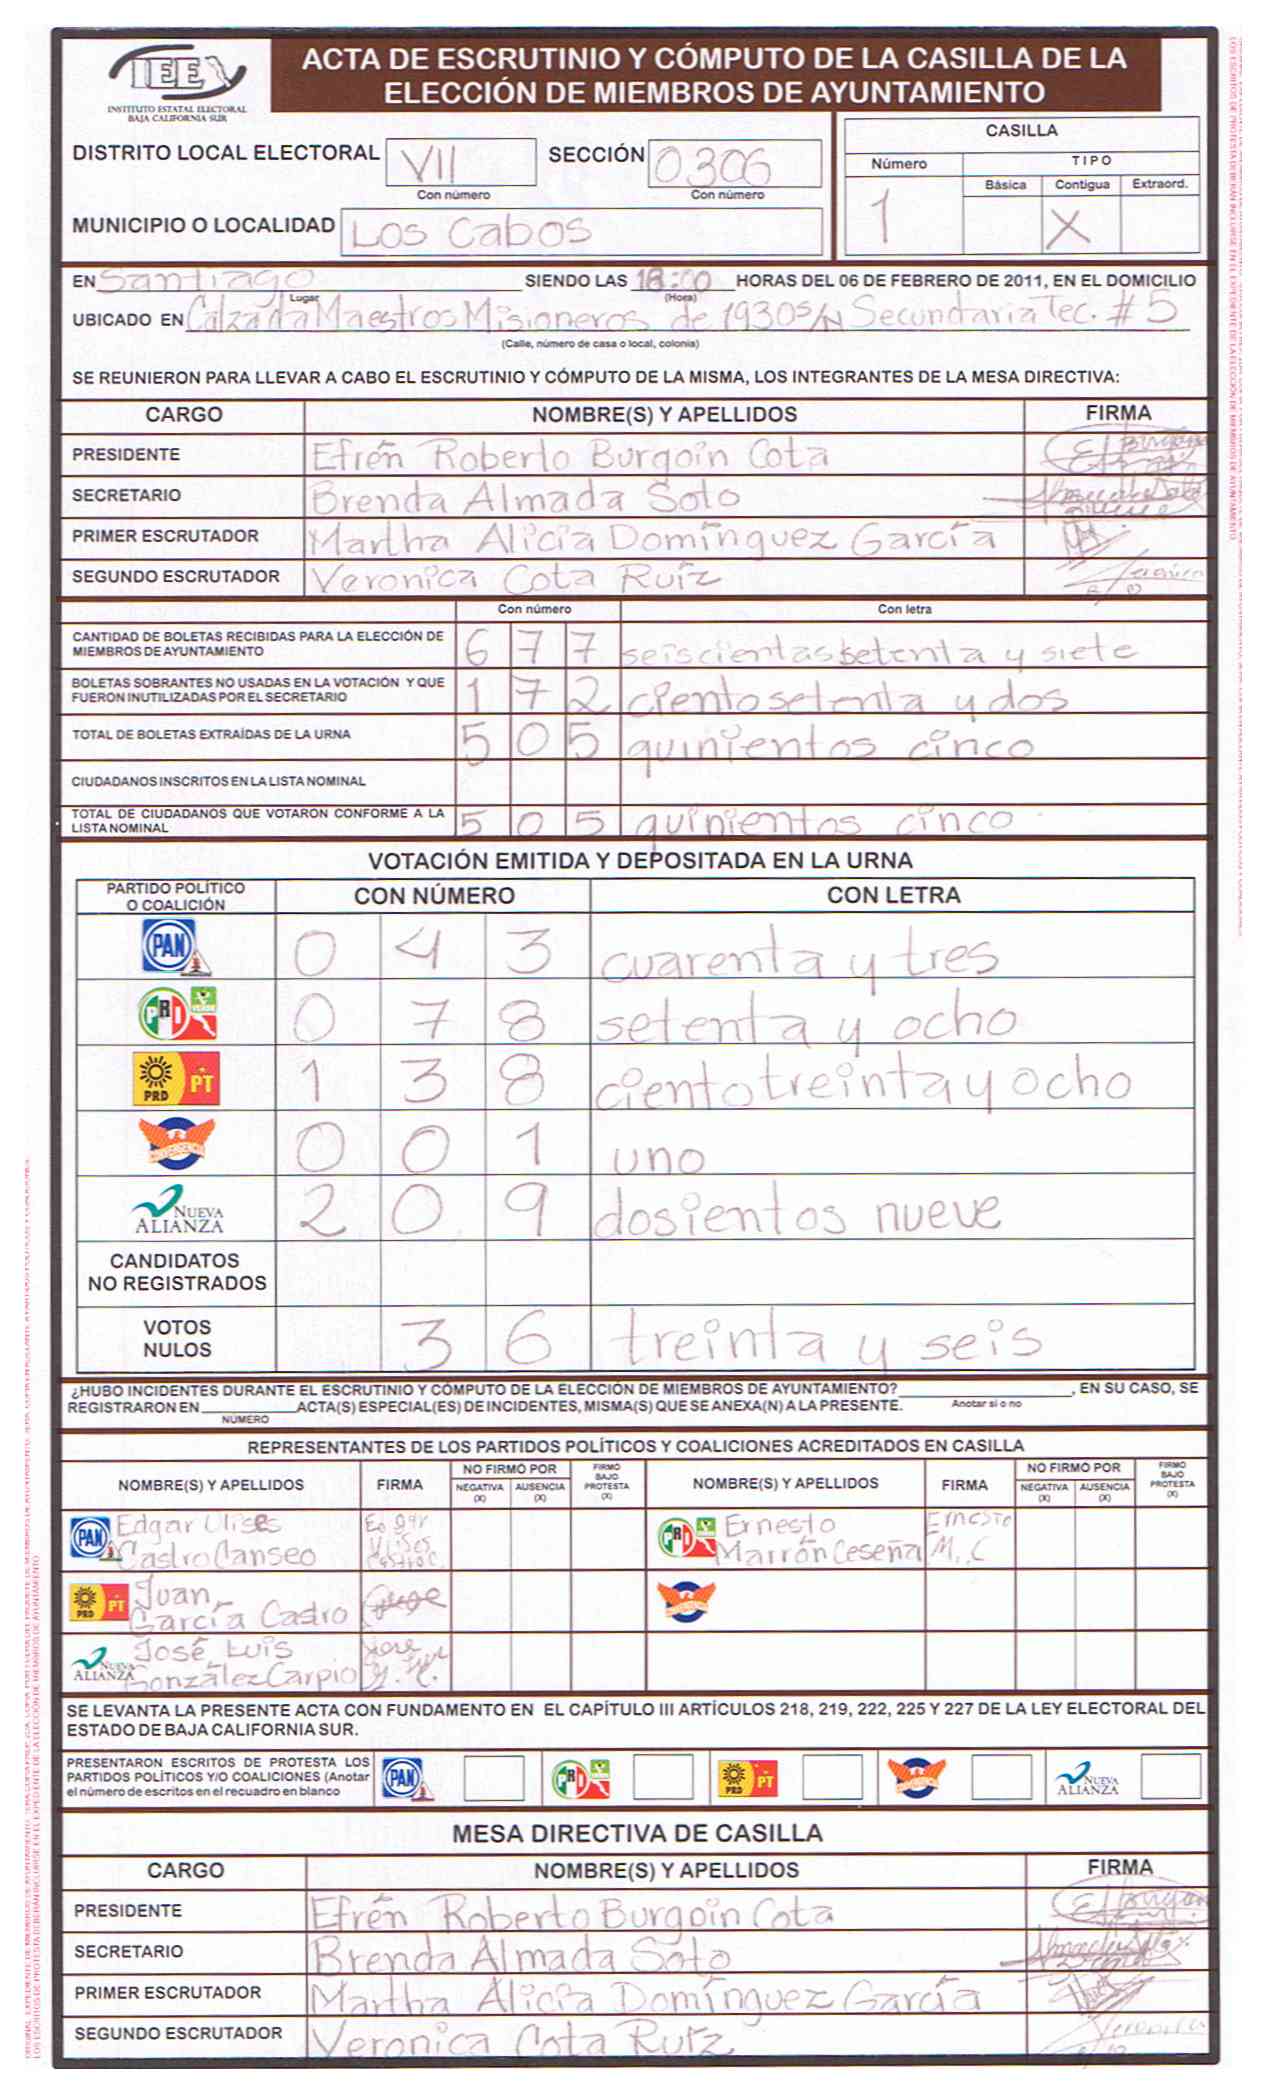 IEE
INSTITUTO ESTATAL ELECTORAL
BAJA CALIFORNIA SUR
ACTA DE ESCRUTINIO Y CÓMPUTO DE LA CASILLA DE LA
ELECCIÓN DE MIEMBROS DE AYUNTAMIENTO
DISTRITO LOCAL ELECTORAL VII SECCIÓN 0306
Con número Con número
MUNICIPIO O LOCALIDAD Los Cabos
CASILLA
Número TIPO
Básica Contigua Extraord.
1 X
EN Santiago SIENDO LAS 18:00 HORAS DEL 06 DE FEBRERO DE 2011, EN EL DOMICILIO
Lugar (Hora)
UBICADO EN Calzada Maestros Misioneros de 1930 S/N Secundaria Tec. # 5
(Calle, número de casa o local, colonia)
SE REUNIERON PARA LLEVAR A CABO EL ESCRUTINIO Y CÓMPUTO DE LA MISMA, LOS INTEGRANTES DE LA MESA DIRECTIVA:
CARGO NOMBRE(S) Y APELLIDOS FIRMA
PRESIDENTE Efrén Roberto Burgoin Cota
SECRETARIO Brenda Almada Soto
PRIMER ESCRUTADOR Martha Alicia Domínguez García
SEGUNDO ESCRUTADOR Veronica Cota Ruíz
Con número Con letra
CANTIDAD DE BOLETAS RECIBIDAS PARA LA ELECCIÓN DE
MIEMBROS DE AYUNTAMIENTO 6 7 7 seiscientas setenta y siete
BOLETAS SOBRANTES NO USADAS EN LA VOTACIÓN Y QUE
FUERON INUTILIZADAS POR EL SECRETARIO 1 7 2 ciento setenta y dos
TOTAL DE BOLETAS EXTRAÍDAS DE LA URNA 5 0 5 quinientos cinco
CIUDADANOS INSCRITOS EN LA LISTA NOMINAL
TOTAL DE CIUDADANOS QUE VOTARON CONFORME A LA
LISTA NOMINAL 5 0 5 quinientos cinco
VOTACIÓN EMITIDA Y DEPOSITADA EN LA URNA
PARTIDO POLÍTICO
O COALICIÓN CON NÚMERO CON LETRA
PAN 0 4 3 cuarenta y tres
PRI VERDE 0 7 8 setenta y ocho
PRD PT 1 3 8 ciento treinta y ocho
CONVERGENCIA 0 0 1 uno
NUEVA ALIANZA 2 0 9 dosientos nueve
CANDIDATOS
NO REGISTRADOS
VOTOS
NULOS 3 6 treinta y seis
¿HUBO INCIDENTES DURANTE EL ESCRUTINIO Y CÓMPUTO DE LA ELECCIÓN DE MIEMBROS DE AYUNTAMIENTO? , EN SU CASO, SE
REGISTRARON EN ACTA(S) ESPECIAL(ES) DE INCIDENTES, MISMA(S) QUE SE ANEXA(N) A LA PRESENTE. Anotar si o no
NÚMERO
REPRESENTANTES DE LOS PARTIDOS POLÍTICOS Y COALICIONES ACREDITADOS EN CASILLA
NOMBRE(S) Y APELLIDOS FIRMA NO FIRMÓ POR NEGATIVA (X) AUSENCIA (X) FIRMÓ BAJO PROTESTA (X) NOMBRE(S) Y APELLIDOS FIRMA NO FIRMÓ POR NEGATIVA (X) AUSENCIA (X) FIRMÓ BAJO PROTESTA (X)
PAN Edgar Ulises Castro Canseo Edgar Ulises Castro C. PRI Ernesto Marrón Ceseña Ernesto M. C
PRD PT Juan García Castro
NUEVA ALIANZA José Luis González Carpio
SE LEVANTA LA PRESENTE ACTA CON FUNDAMENTO EN EL CAPÍTULO III ARTÍCULOS 218, 219, 222, 225 Y 227 DE LA LEY ELECTORAL DEL
ESTADO DE BAJA CALIFORNIA SUR.
PRESENTARON ESCRITOS DE PROTESTA LOS
PARTIDOS POLÍTICOS Y/O COALICIONES (Anotar
el número de escritos en el recuadro en blanco
PAN PRI PRD PT NUEVA ALIANZA
MESA DIRECTIVA DE CASILLA
CARGO NOMBRE(S) Y APELLIDOS FIRMA
PRESIDENTE Efrén Roberto Burgoin Cota
SECRETARIO Brenda Almada Soto
PRIMER ESCRUTADOR Martha Alicia Domínguez García
SEGUNDO ESCRUTADOR Veronica Cota Ruíz